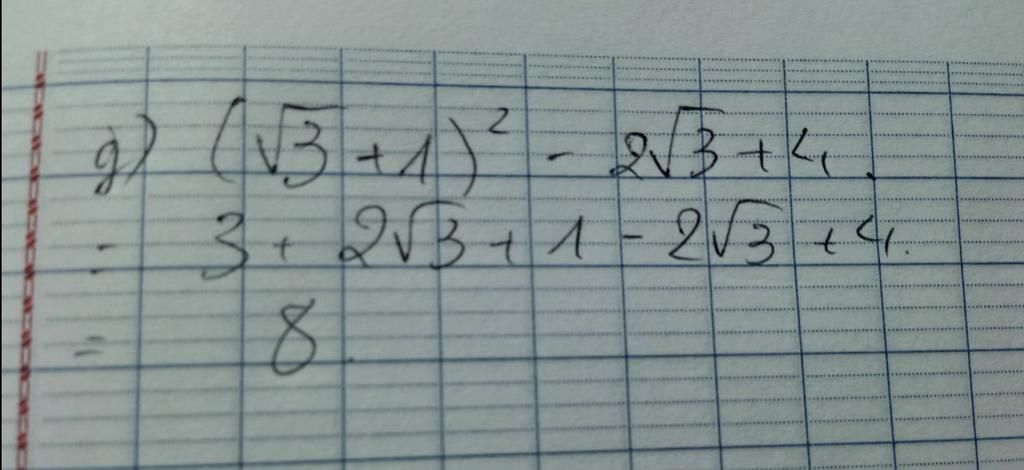 g) (√3 + 1)² - 2√3 + 4.
= 3 + 2√3 + 1 - 2√3 + 4.
= 8.